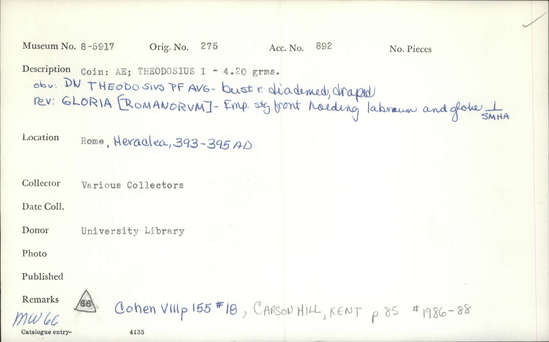 Museum No. 8-5917 Orig. No. 275 Acc. No. 892 No. Pieces
Description Coin: AE; THEODOSIUS I - 4.20 grms.
obv: DN THEODOSIVS PF AVG- bust r. diademed, draped
rev: GLORIA [ROMANORVM]- Emp. stg front holding labarum and globe ⊥
SMHA
Location Rome, Heraclea, 393-395 AD
Collector Various Collectors
Date Coll.
Donor University Library
Photo
Published
Remarks 66 Cohen VIII p 155 #18, CARSON HILL, KENT p 85 #1986-88
MW66
Catalogue entry- 4135